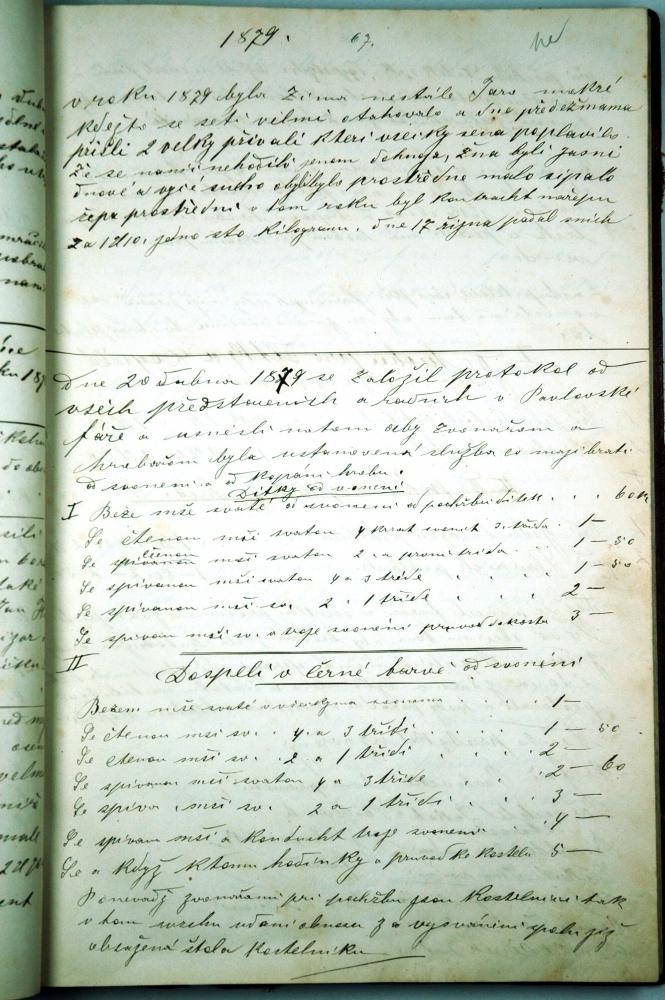 1879. 67.
v roku 1879 byla Zima nestále Jaro mokré
kdežto se setí velmi otahovalo a dne předežnama
přišli 2 velky přívali kteri všecky sena poplavilo
že se namísi nehodilo jenom dohnoje, žna byli jasni
dnové a vyce sucho obylí bylo prostředne malo sipalo
řepa prostředni v tom roku byl kontracht na řepu
za 1 zl 10. jedno sto Kilogramu. dne 17 října padal sních
Dne 20 dubna 1879 se založil protokol od
všech představenich a radnich v Pavlovské
fáře a usnésli natom aby zvonařom a
hrobařom byla ustanovená služba co maji brati
od svoneni a od kopáni hrobu.
Dítky od voneni
I Beze mše svaté od svoneni od pohřbu ditek . . . 60 k
Se čtenou mši svatou 4 krat svonit 3. třida . 1 —
Se čtenou mši svatou 2. a první třida . . . 1 — 50
Se spivanou mši svatou 4 a 3 třide . . . . 1 — 50
Se spivanou mši sv. 2 . 1 třide . . . . 2 —
Se spivanou mši sv. a troje svonéni pruvod do kosta 3 —
II Dospeli v černé barvě od svonéni
Bezem mše svaté . . . 1 —
Se čtenou mši sv. . 4 a 3 třidi . . . . . 1 — 50
Se čtenou mši sv. . 2 a 1 třidi . . . . 2 —
Se spivanou mši svatou 4 a 3 třide . . . 2 — 60
Se spiva . mši sv. 2 a 1 třidi . . . 3 —
Se spivam mši a kondukt troje svoneni . . . 4 —
Se a když k tomu hodinky a pruvod ko kostela 5 —
Ponevadž zvonařami při pohřbu jsou kostelnici tak
v tom vsechu udani obnosu za vyzváněni spolu již
obsažená štola kostelníka